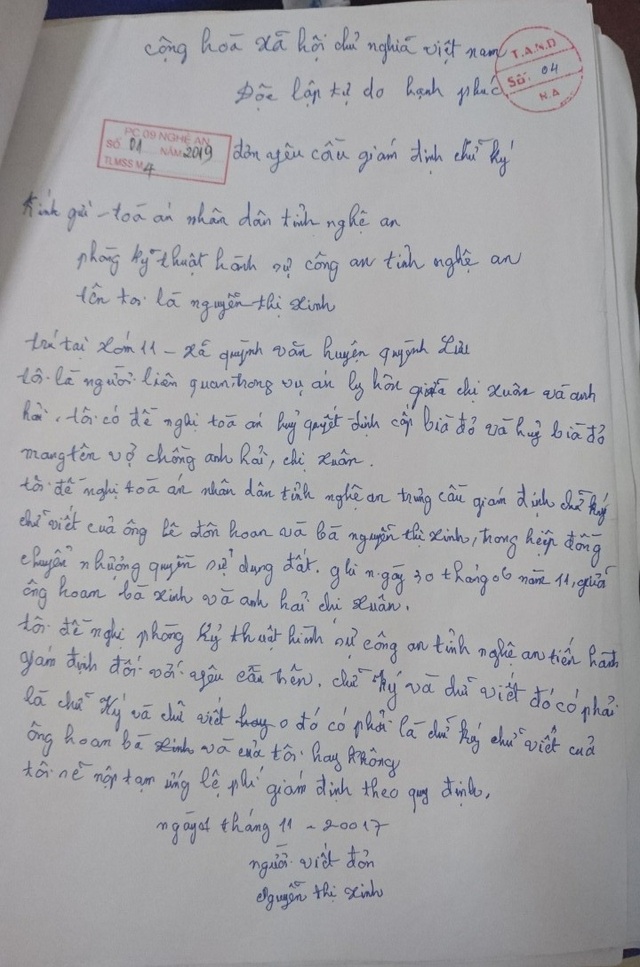 cộng hoà xã hội chủ nghiã việt nam
Độc lập tự do hạnh phúc
T.A.N.D
Số: 04
N.A
PC 09 NGHỆ AN
SỐ 01 NĂM 2019
TLMSS M4
đơn yêu cầu giám định chữ ký
Kính gửi - toà án nhân dân tỉnh nghệ an
phòng kỹ thuật hành sự công an tỉnh nghệ an
tôn toi là nguyễn thị xinh
trú tại xóm 11 - xã quỳnh văn huyện quỳnh Lưu
tôi là người liên quan trong vụ án ly hôn giữa chị xuân và anh
hải. tôi có đề nghị toà án huỷ quyết định cấp bià đỏ và huỷ bià đỏ
mang tên vợ chồng anh hải, chị xuân.
tôi đề nghị toà án nhân dân tỉnh nghệ an trưng cầu giám định chữ ký
chữ viết cuả ông lê đôn hoan và bà nguyễn thị xinh, trong hợp đồng
chuyển nhượng quyền sử dụng đất. ghi ngày 30 tháng 06 năm 11, giữa
ông hoan bà xinh và anh hải chị xuân.
tôi đề nghị phòng kỷ thuật hình sự công an tỉnh nghệ an tiến hành
giám định đối với yêu cầu trên. chữ ký và chữ viết đó có phải
là chữ ký và chữ viết đó có phải là chữ ký chữ viết cuả
ông hoan bà xinh và của tôi hay không
tôi sẽ nộp tạm ứng lệ phí giám định theo quy định.
ngày 1 tháng 11 - 20017
người viết đơn
Nguyễn thị xinh